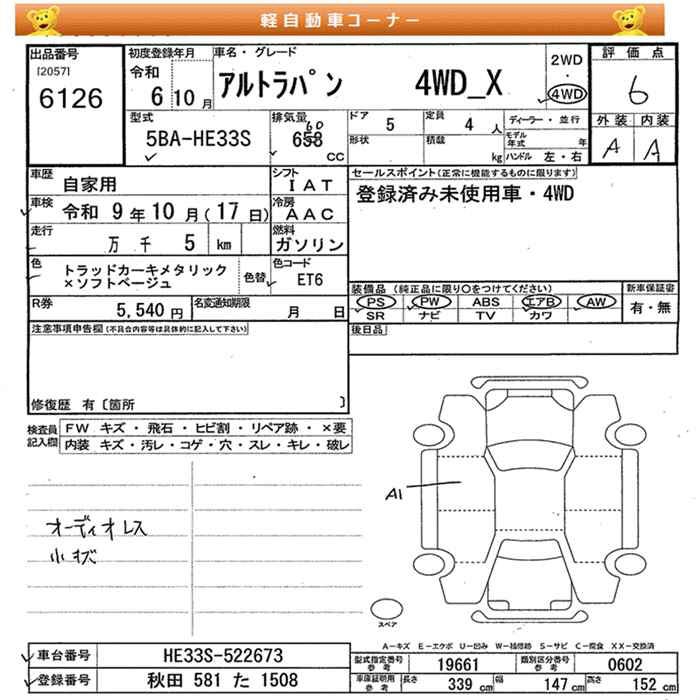 軽自動車コーナー
出品番号
[2057]
6126
初度登録年月
令和
6 10 月
車名・グレード
アルトラパン 4WD_X
2WD
・
4WD
評価点
6
外装 内装
A A
型式
5BA-HE33S
排気量
60
658
CC
ドア 5
定員 4 人
形状
積載 kg
ディーラー・並行
モデル年式 年
ハンドル 左・右
車歴 自家用
シフト IAT
車検 令和 9 年 10 月(17 日)
冷房 AAC
走行 万 千 5 km
燃料 ガソリン
色 トラッドカーキメタリック
×ソフトベージュ
色替
色コード ET6
R券 5,540 円
名変通知期限 月 日
セールスポイント(正常に機能するものに限ります)
登録済み未使用車・4WD
装備品 (純正品に限り○をつけてください)
PS PW ABS エアB AW
SR ナビ TV カワ
新車保証書
有・無
後日品
注意事項申告欄(不具合内容等は具体的に記入して下さい)
修復歴 有〔箇所 〕
検査員記入欄
FW キズ・飛石・ヒビ割・リペア跡・×要
内装 キズ・汚レ・コゲ・穴・スレ・キレ・破レ
オーディオレス
小キズ
A1
スペア
A-キズ E-エクボ U-凹み W-補修跡 S-サビ C-腐食 XX-交換済
車台番号 HE33S-522673
登録番号 秋田 581 た 1508
型式指定番号参考 19661
類別区分番号参考 0602
車庫証明用参考 長さ 339 cm 幅 147 cm 高さ 152 cm